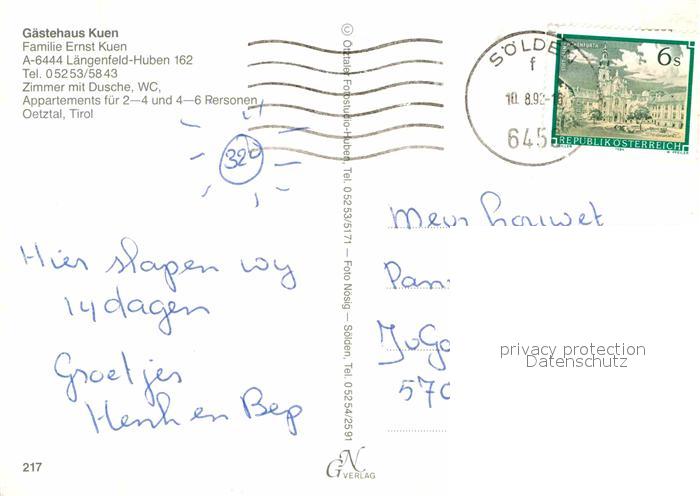 Gästehaus Kuen
Familie Ernst Kuen
A-6444 Längenfeld-Huben 162
Tel. 05253/5843
Zimmer mit Dusche, WC,
Appartements für 2—4 und 4—6 Personen
Oetztal, Tirol
32°
Hier slapen wy
14 dagen
Groetjes
Henk en Bep
217
© Ötztaler Fotostudio-Huben, Tel. 05253/5171 — Foto Nösig — Sölden, Tel. 05254/2591
GN
VERLAG
SÖLDE
f
10. 8.92-16
645
6s
REPUBLIK ÖSTERREICH
Mevr
Pan
JvGo
570
privacy protection
Datenschutz